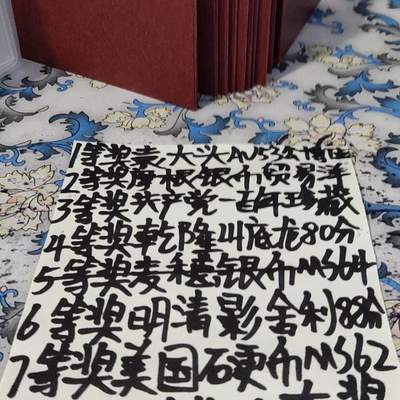 1等奖袁大头AU53公博
2等奖摩根银币贸易
3等奖共产党一百年珍藏
4等奖乾隆 底龙80分
5等奖麦穗银币MS64
6等奖明清影舍利88分
7等奖美国硬币MS62